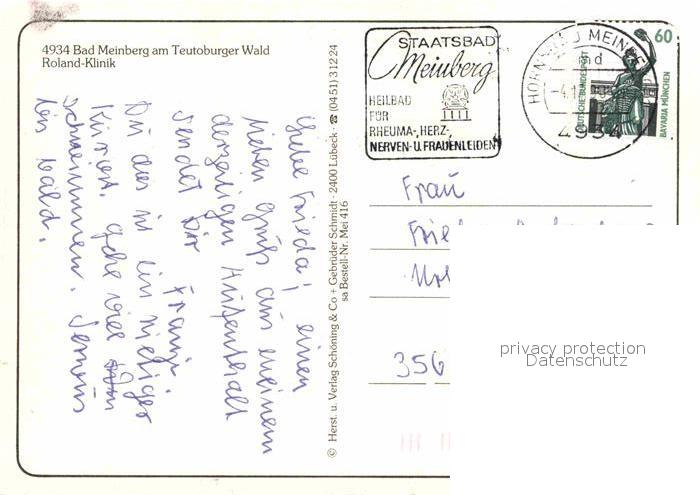 4934 Bad Meinberg am Teutoburger Wald
Roland-Klinik
STAATSBAD
Meinberg
HEILBAD
FÜR
RHEUMA-, HERZ-,
NERVEN- U. FRAUENLEIDEN
HORN-BAD MEINBERG
4934
60
DEUTSCHE BUNDESPOST
BAVARIA MÜNCHEN
Liebe Frieda, einen
lieben Gruß aus meinem
derzeitigen Aufenthalt
sendet Dir
Franzi.
Du dies ist ein
Kurort. Gehe viel
schwimmen.
bis bald.
© Herst. u. Verlag Schöning & Co + Gebrüder Schmidt · 2400 Lübeck · ☎ (0451) 31224
sa Bestell-Nr. Mei 416
Frau
356
privacy protection
Datenschutz